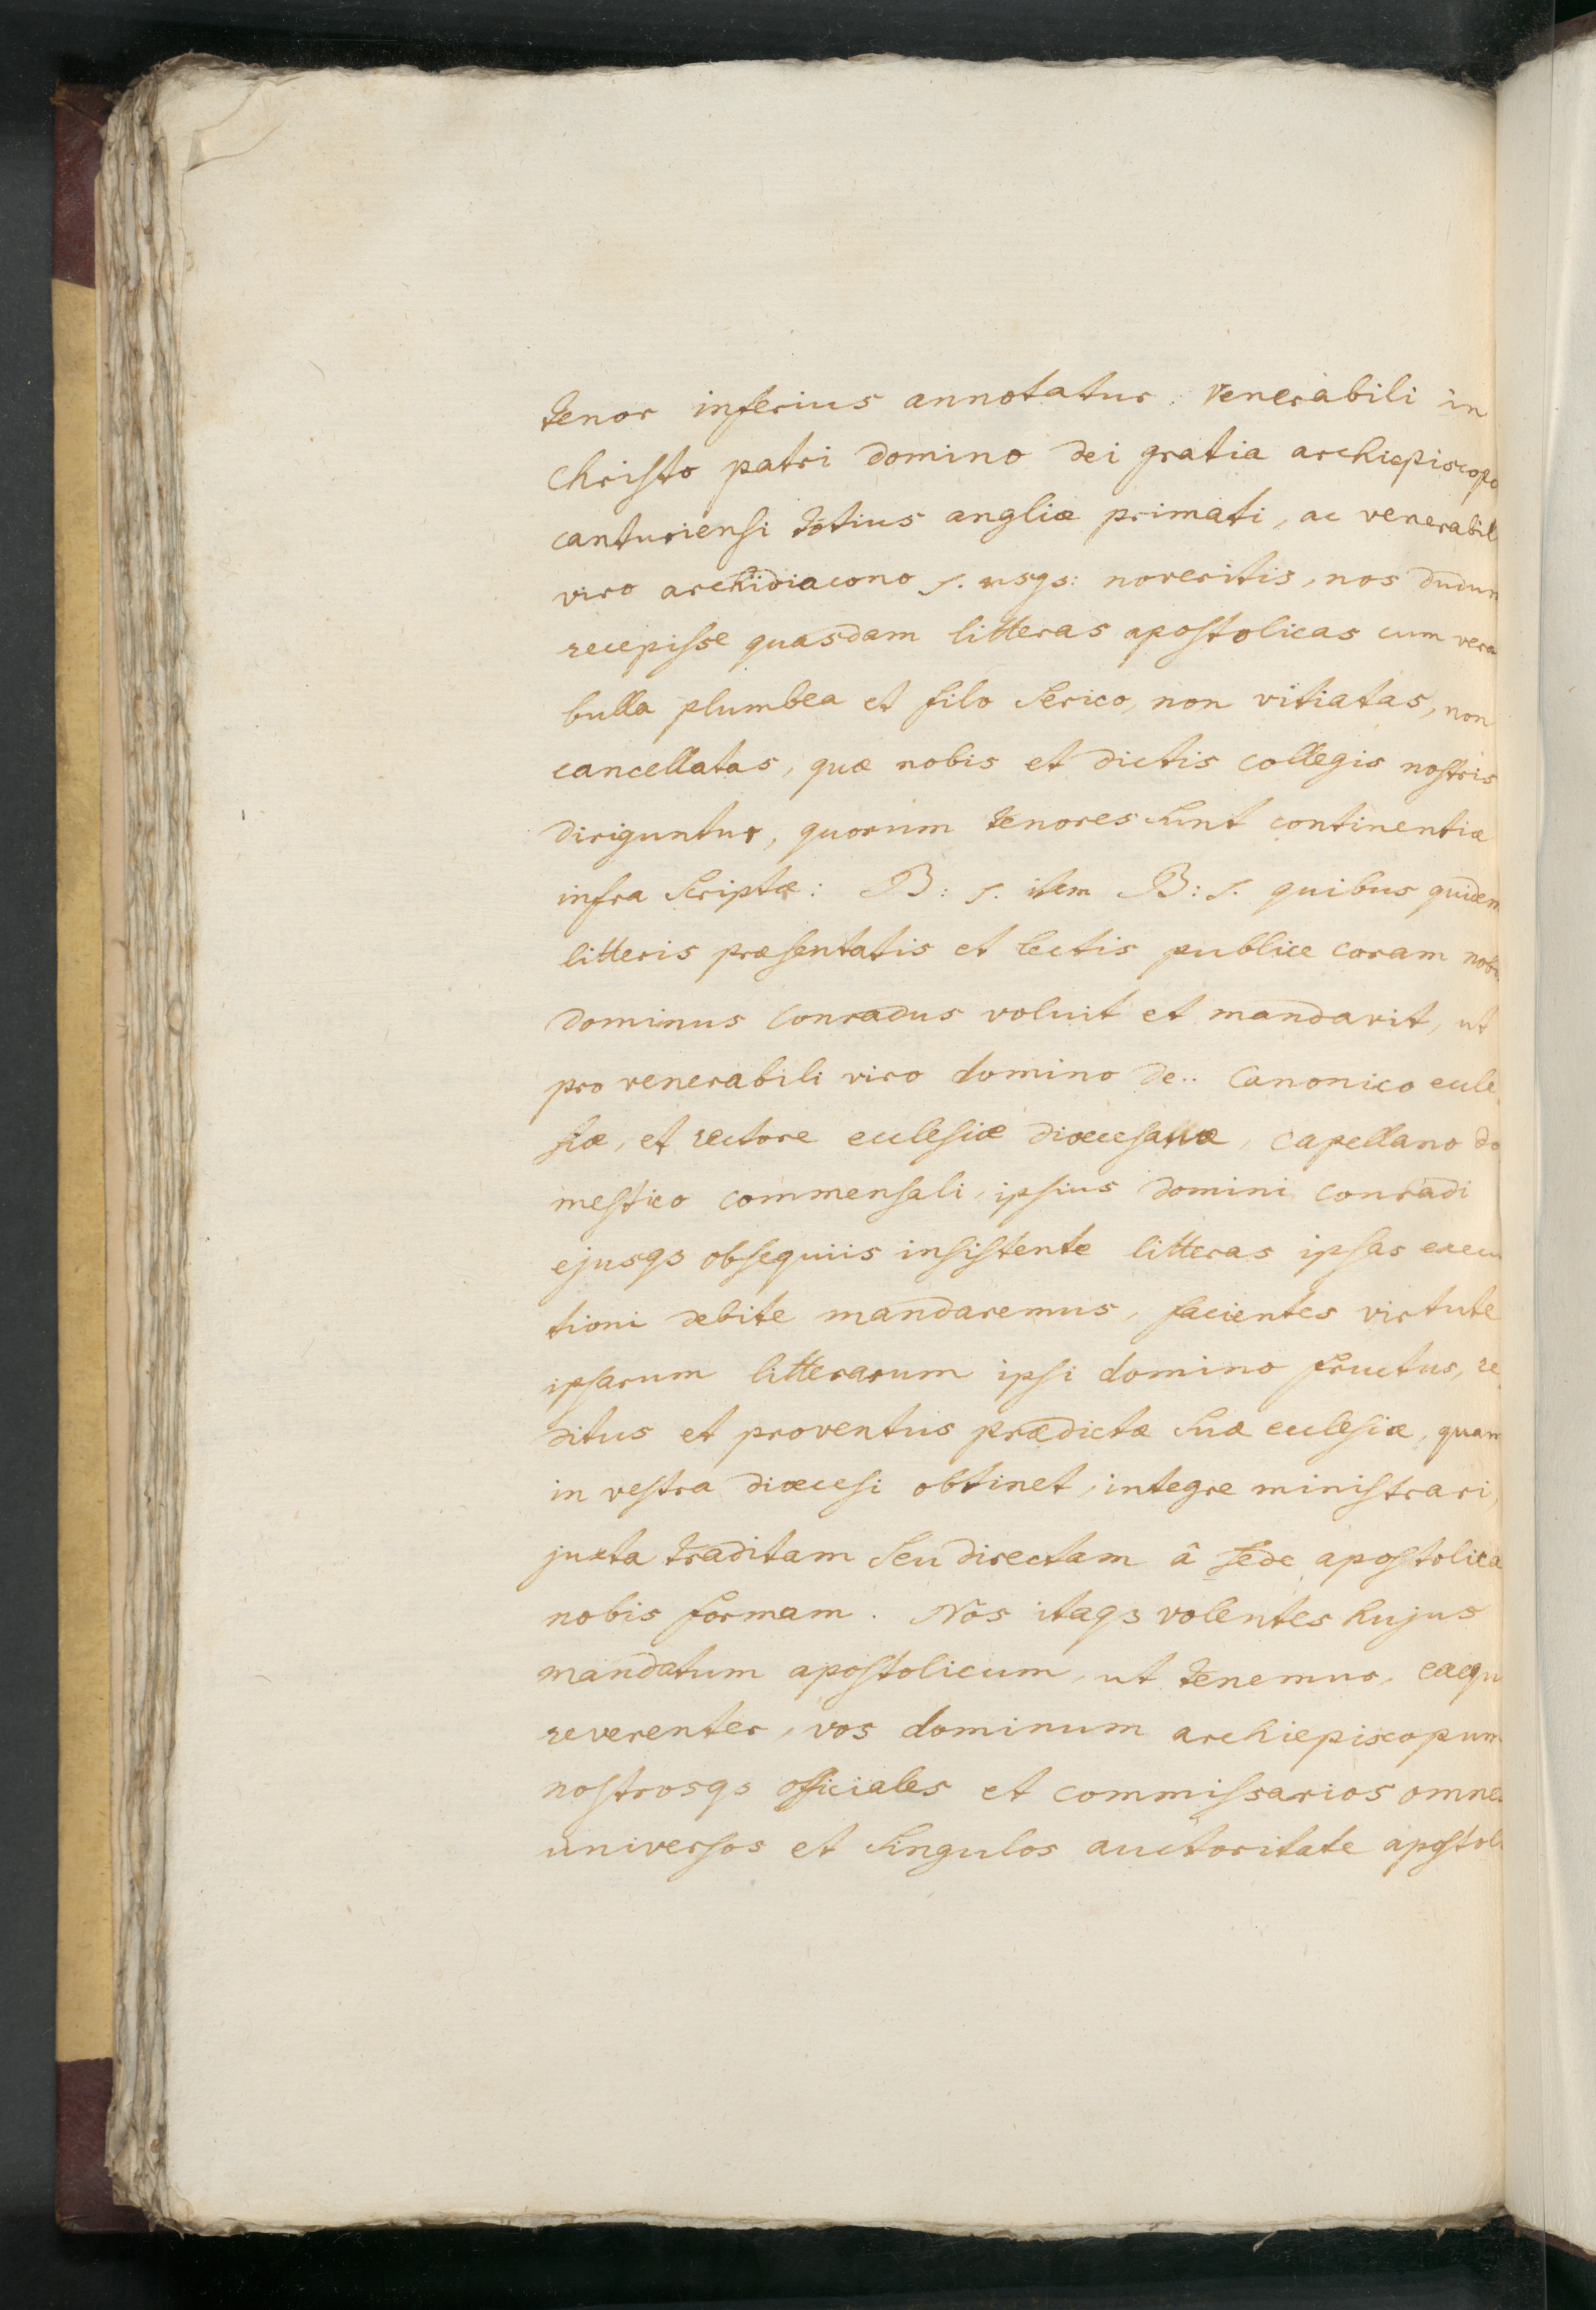 tenor inferius annotatur. Venerabili in
Christo patri domino dei gratia archiepiscopo
canturiensi totius angliæ primati, ac venerabil
viro archidiacono s. usqs: noveritis, nos dudum
recepisse quasdam litteras apostolicas cum vera
bulla plumbea et filo serico, non vitiatas, non
cancellatas, quæ nobis et dictis collegis nostris
diriguntur, quorum tenores sunt continentiæ
infra scriptæ: B: s. item B: s. quibus quidem
litteris præsentatis et lectis publice coram nobis
dominus conradus voluit et mandavit, ut
pro venerabili viro domino de.. Canonico eccle
siæ, et rectore ecclesiæ diœcesanæ, capellano do
mestico commensali, ipsius domini conradi
ejusqs obsequiis insistente litteras ipsas execu
tioni debite mandaremus, facientes virtute
ipsarum litterarum ipsi domino fructus, re
ditus et proventus prædictæ suæ ecclesiæ, quam
in vestra diœcesi obtinet, integre ministrari,
juxta traditam seu directam â sede apostolica
nobis formam. Nos itaq3 volentes hujus
mandatum apostolicum, ut tenemur, exequ
reverenter, vos dominum archiepiscopum
nostrosqs officiales et commissarios omnes
universos et singulos auctoritate apostoli